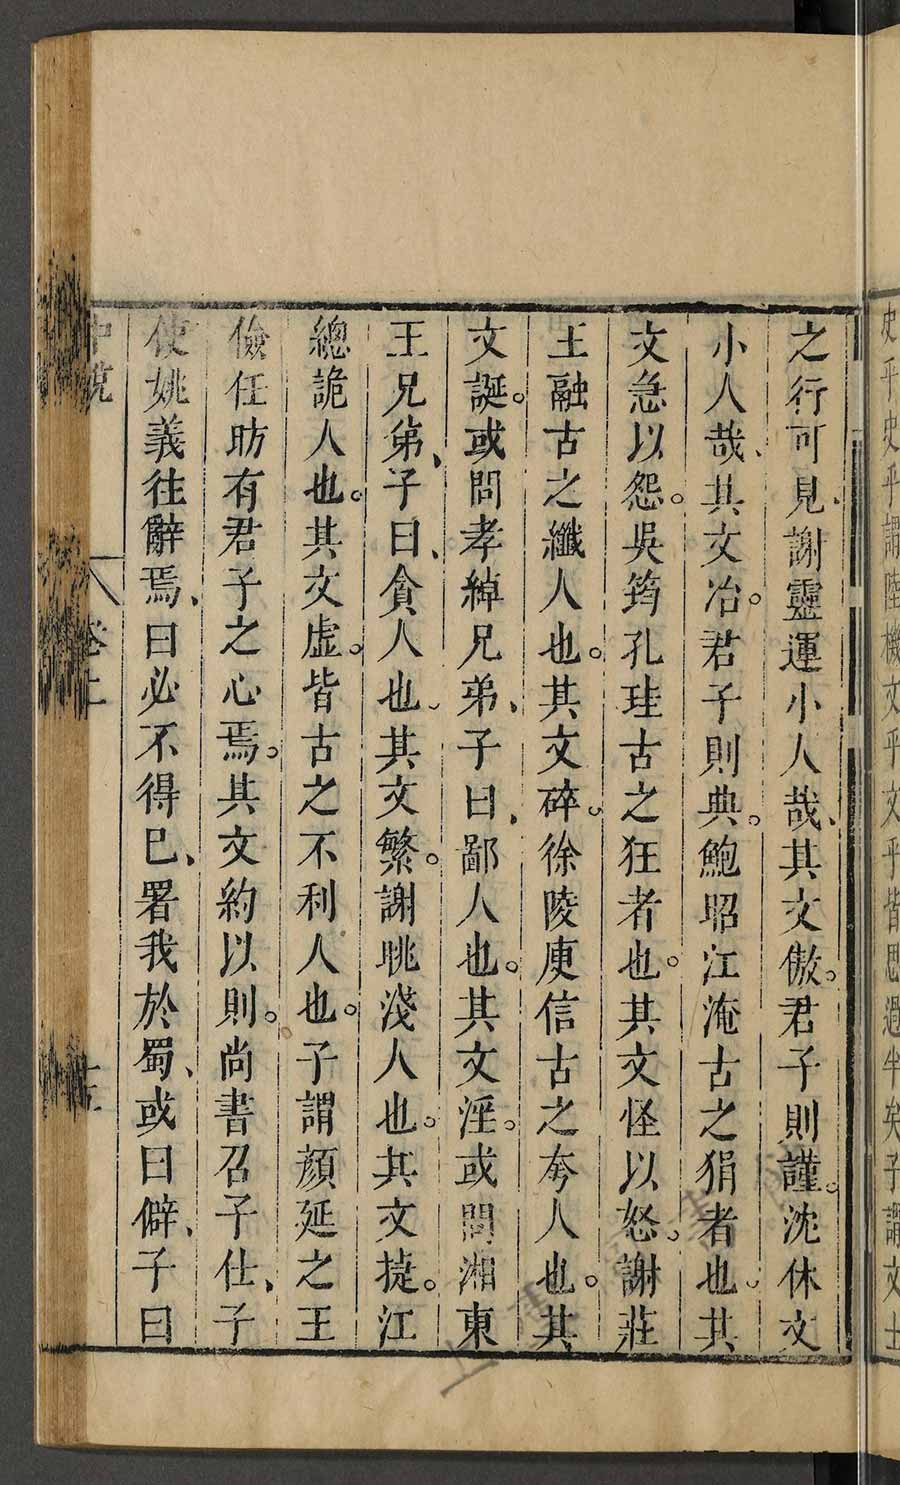 史乎史乎謂陸機文乎文乎皆思過半矣子謂文士
之行可見謝靈運小人哉其文傲。君子則謹。沈休文
小人哉、其文冶。君子則典。鮑昭江淹古之狷者也其
文急以怨。吳筠孔珪古之狂者也。其文怪以怒。謝莊
王融古之纖人也。其文碎。徐陵庾信古之夸人也。其
文誕。或問孝綽兄弟、子曰、鄙人也。其文淫。或問湘東
王兄弟、子曰、貪人也。其文繁。謝眺淺人也。其文捷。江
總詭人也。其文虛。皆古之不利人也。子謂顏延之王
儉任昉有君子之心焉。其文約以則。尚書召子仕、子
使姚義往辭焉、曰必不得已、署我於蜀、或曰僻、子曰
中說 卷上